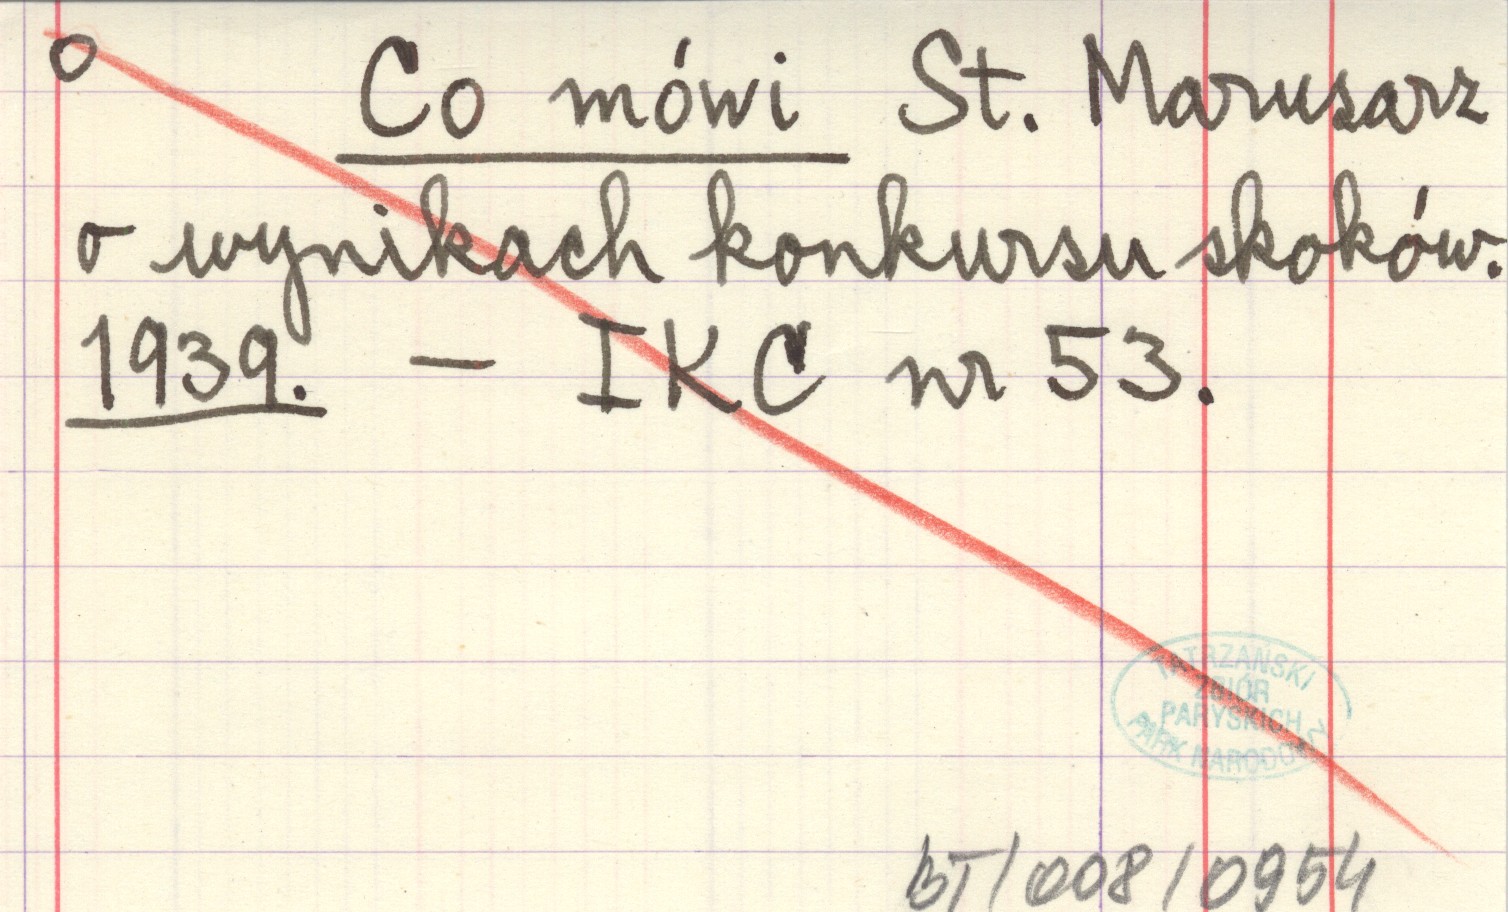 o Co mówi St. Marusarz
o wynikach konkursu skoków.
1939. — IKC nr 53.
TATRZAŃSKI
ZBIÓR
PARYSKICH
PARK NARODOWY
BT/008/0954